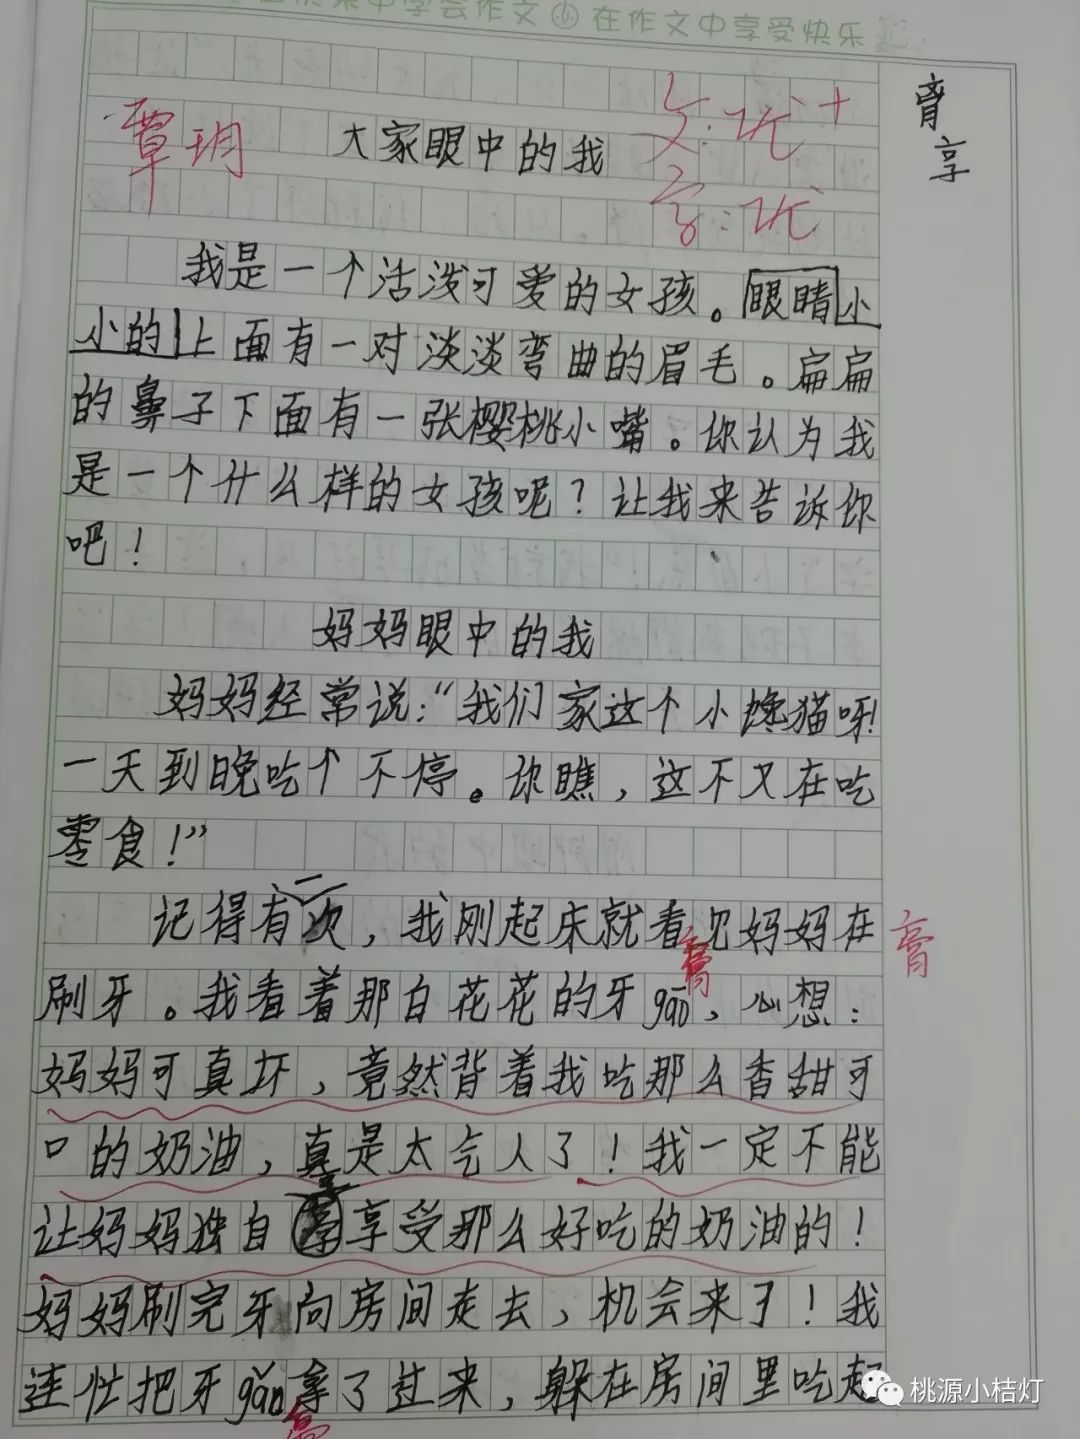 快乐中学会作文 在作文中享受快乐
享
覃玥 大家眼中的我 文:优+
字:优
我是一个活泼可爱的女孩。眼睛小
小的上面有一对淡淡弯曲的眉毛。扁扁
的鼻子下面有一张樱桃小嘴。你认为我
是一个什么样的女孩呢?让我来告诉你
吧!
妈妈眼中的我
妈妈经常说:“我们家这个小馋猫呀!
一天到晚吃个不停。你瞧,这不又在吃
零食!”
记得有一次,我刚起床就看见妈妈在
膏 膏
刷牙。我看着那白花花的牙gāo,心想:
妈妈可真坏,竟然背着我吃那么香甜可
口的奶油,真是太气人了!我一定不能
让妈妈独自享受那么好吃的奶油的!
妈妈刷完牙向房间走去,机会来了!我
连忙把牙gāo拿了过来,躲在房间里吃起
膏
桃源小桔灯